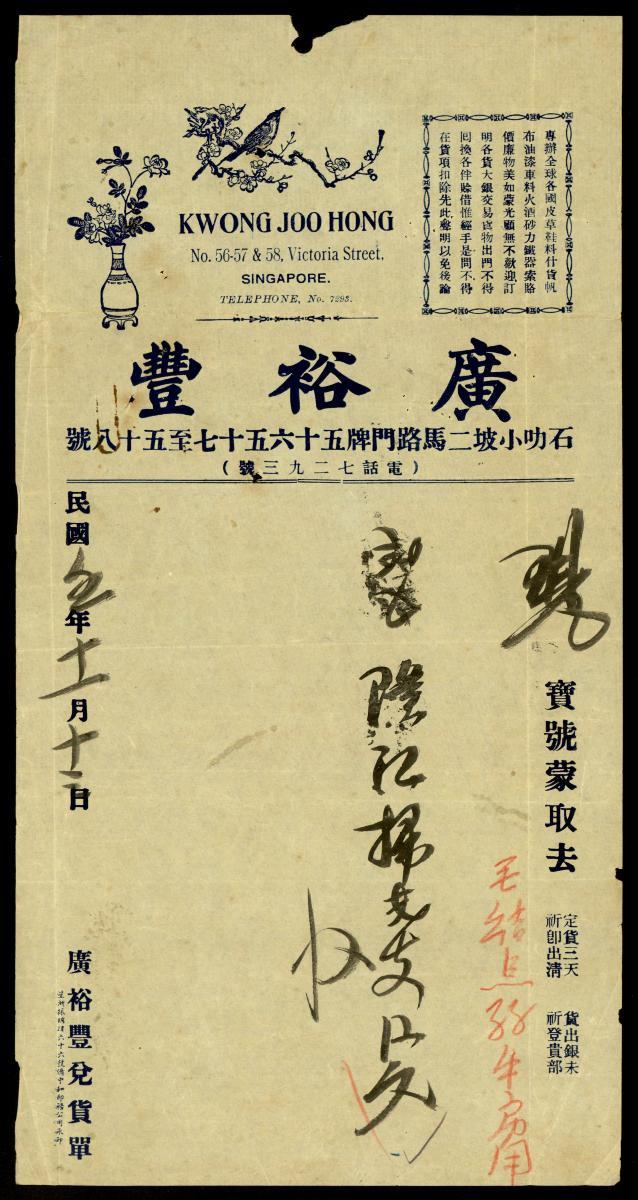 KWONG JOO HONG
No. 56-57 & 58, Victoria Street,
SINGAPORE.
TELEPHONE, No. 7293.
專辦全球各國皮草鞋料什貨帆
布油漆車料火酒砂力鐵器索路
價廉物美如蒙光顧無不歡迎訂
明各貨大銀交易貨物出門不得
囘換各伴賒借惟經手是問不得
在貨項扣除先此聲明以免後論
廣裕豐
石叻小坡二馬路門牌五十六五十七至五十八號
(電話七二九三號)
現
寶號蒙取去
定貨三天
祈即出淸
貨出銀未
祈登貴部
紅掃
民國五年十一月十二日
廣裕豐兌貨單